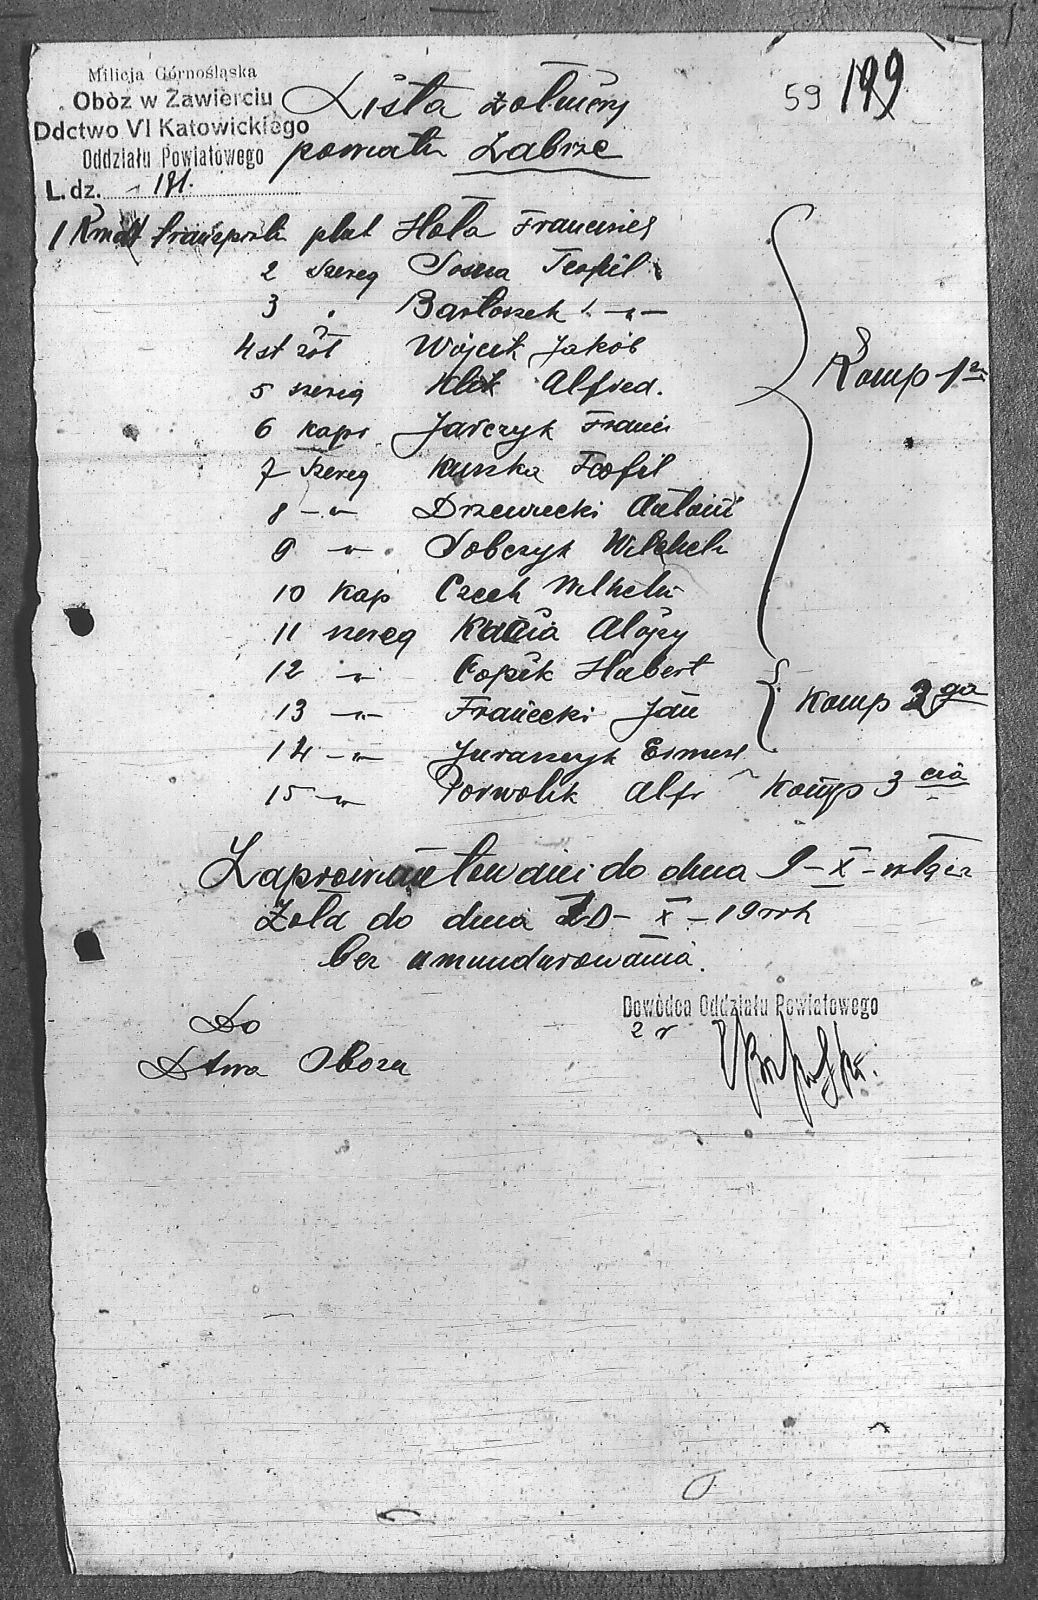 Milicja Górnośląska
Obòz w Zawierciu
Ddctwo VI Katowickiego
Oddziału Powiatowego
L. dz. 181.
Lista żołnierzy
powiatu Zabrze
59 199
1 Kmdt transportu plut Hota Franciszek
2 szereg Sosna Teofil
3 " Bartoszek " 
4 st żół Wójcik Jakób
5 szereg Klik Alfred.
6 kapr. Jarczyk Franci
7 szereg Kuszka Teofil
8 - " Drzewiecki Antoni
9 " Sobczyk Wilhelm
10 kap Czech Wilhelm
11 szereg Kania Alojzy
12 " Copik Hubert
13 - " - Franecki Jan
14 - " - Juraszczyk Ernest
15 - " Porwolik Alfr
Komp 1sza
Komp 2ga
Komp 3cia
Zaprowiantowani do dnia 9-X-włącz
Żołd do dnia 10-X-19 rok
bez umundurowania.
Do
Dtwa Obozu
Dowódca Oddziału Powiatowego